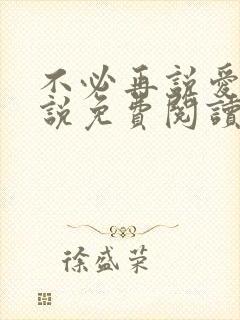 不必再説愛
説免費閱讀
徐盛荣